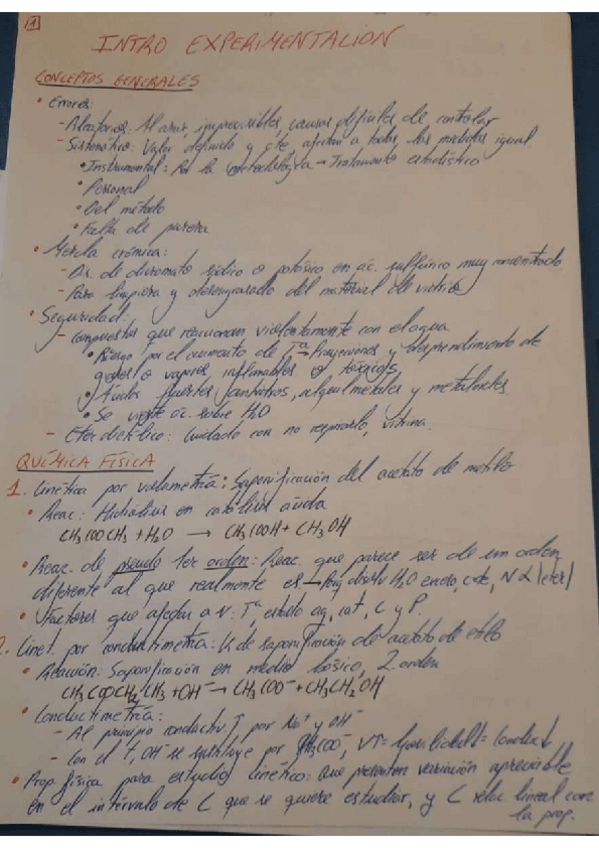 1
INTRO EXPERIMENTACION
CONCEPTOS GENERALES
• Errores:
- Aleatorios: Al azar, imprevisibles, causas difíciles de controlar
- Sistemático: Valor definido y cte, afectan a todas las medidas igual
• Instrumental: Por la metodología → Tratamiento estadístico
• Personal
• Del método
• Falta de pureza
• Mezcla crómica:
- Dis. de dicromato sódico o potásico en ác. sulfúrico muy concentrado
- Para limpieza y desengrasado del material de vidrio
• Seguridad:
- Compuestos que reaccionan violentamente con el agua
• Riesgo por el aumento de Tª → Proyecciones y desprendimiento de
gases o vapores inflamables o tóxicos
• Ácidos fuertes anhidros, alquilmetales y metaloides
• Se vierte ác. sobre H2O
- Éter dietílico: Cuidado con no respirarlo, vitrina.
QUÍMICA FÍSICA
1. Cinética por volumetría: Saponificación del acetato de metilo
• Reac: Hidrólisis en catálisis ácida
CH3COOCH3 + H2O → CH3COOH + CH3OH
• Reac. de pseudo 1er orden: Reac. que parece ser de un orden
diferente al que realmente es → H2O cte, N α [éter]
• Factores que afectan a v: Tª, estado ag, cat, C y P.
2. Cinet. por conductimetría: K de saponificación de acetato de etilo
• Reacción: Saponificación en medio básico, 2. orden
CH3COOCH2CH3 + OH⁻ → CH3COO⁻ + CH3CH2OH
• Conductimetría:
- Al principio conductiv. ↑ por Na⁺ y OH⁻
- Con el t, OH⁻ se sustituye por CH3COO⁻,
• Prop. física para estudio cinético: Que presenten variación apreciable
en el intérvalo de C que se quiere estudiar, y C relac. lineal con
la prop.